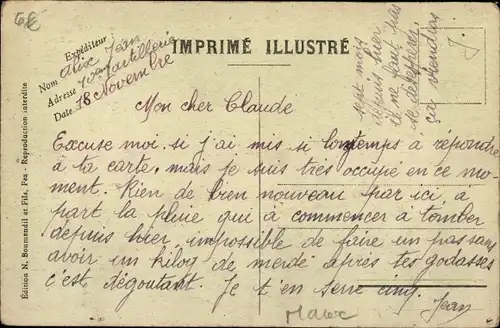 6€
IMPRIMÉ ILLUSTRÉ
Expéditeur
Nom Alix Jean
Adresse d'artillerie
Date 18 Novembre
sept mois
depuis hier
il ne faut pas
se désespérer,
j'ai
Mon cher Claude
Excuse moi si j'ai mis si longtemps a répondre
à ta carte, mais je suis très occupé en ce mo-
ment. Rien de bien nouveau par ici, a
part la pluie qui a commencer à tomber
depuis hier, impossible de faire un pas sans
avoir un kilog de merde après tes godasses
c'est dégoutant. Je t'en serre cinq.
Jean
Maroc
Édition N. Boumendil et Fils, Fez - Reproduction interdite